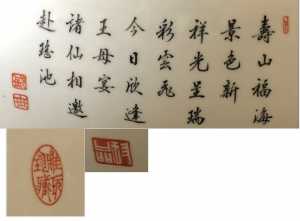 壽山福海
景色新
祥光呈瑞
彩雲飛
今日欣逢
王母宴
諸仙相邀
赴瑤池